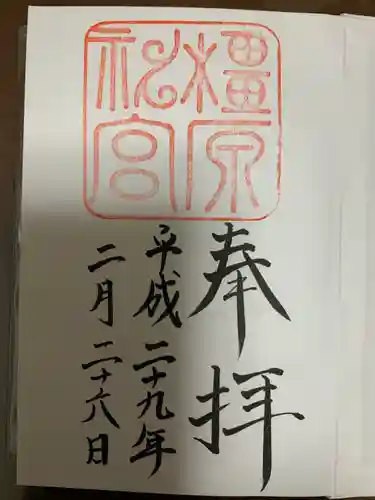 橿原神宮
奉拝
平成二十九年
二月二十六日